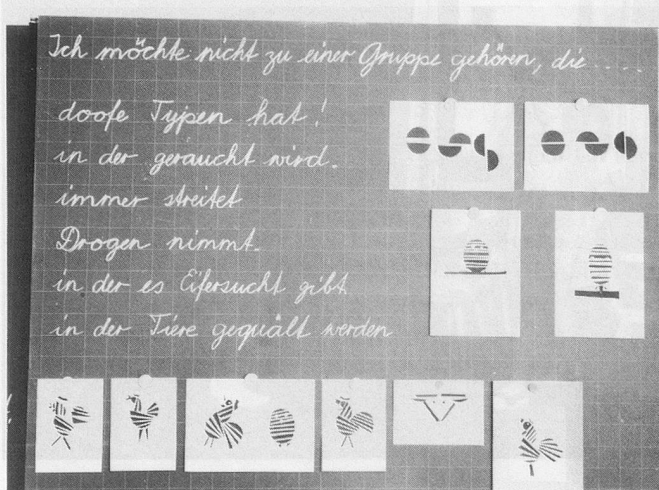 Ich möchte nicht zu einer Gruppe gehören, die.....
doofe Typen hat!
in der geraucht wird.
immer streitet
Drogen nimmt.
in der es Eifersucht gibt
in der Tiere gequält werden